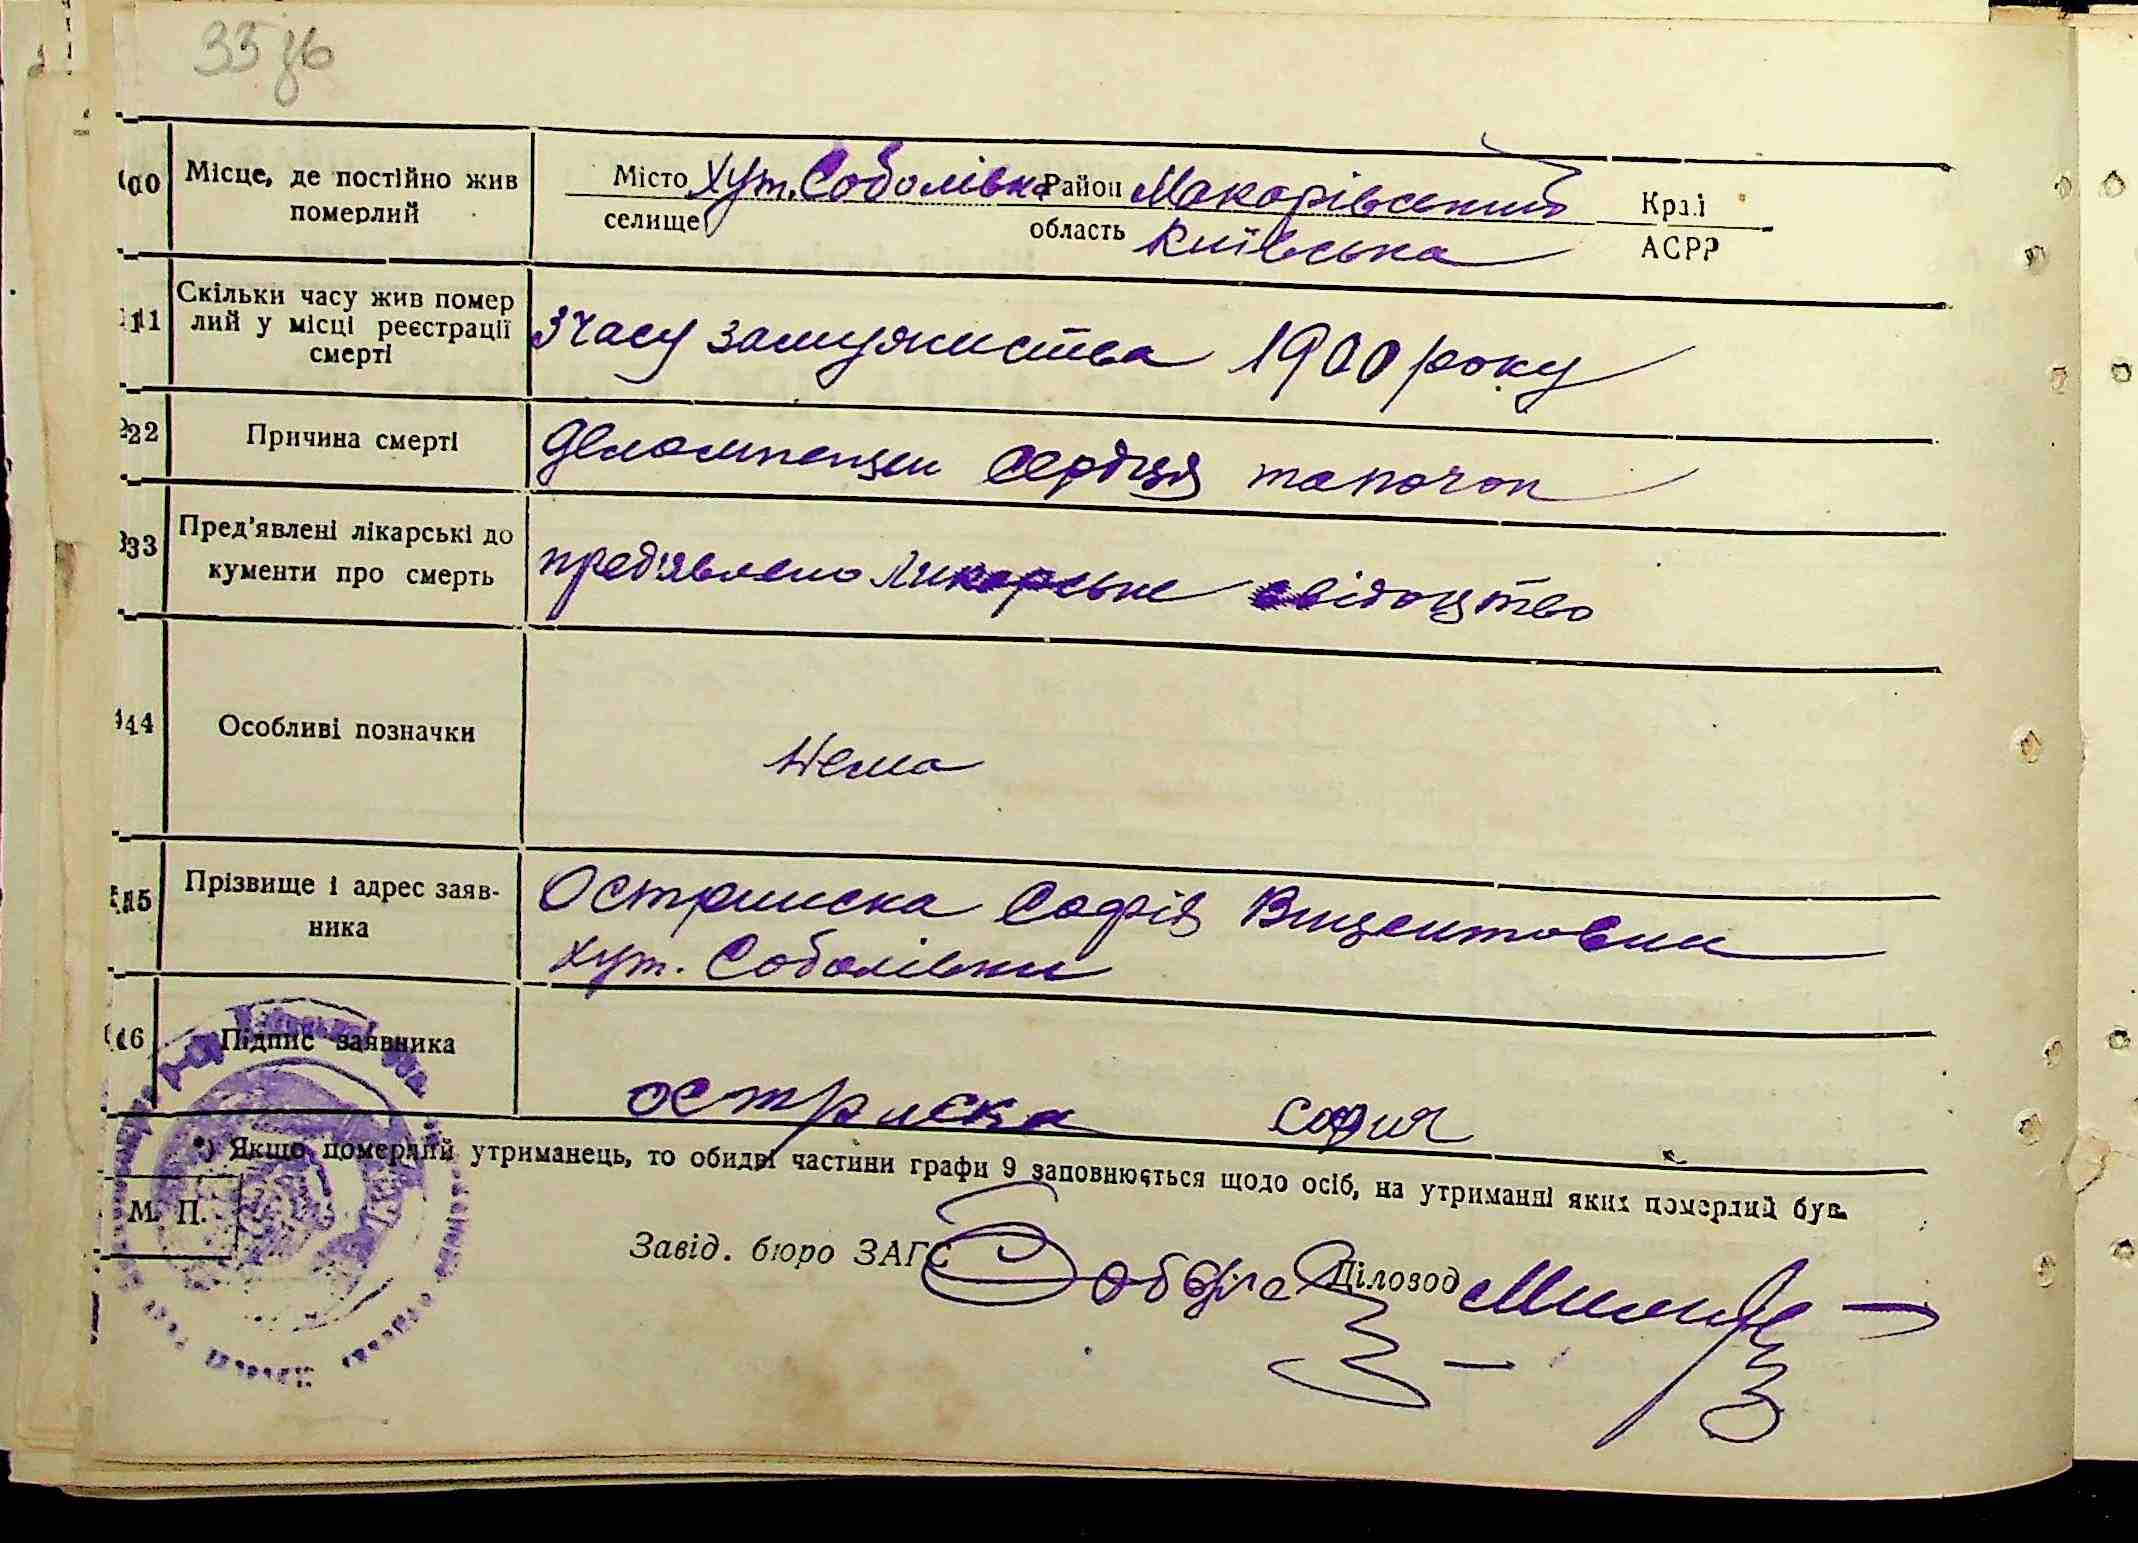 33 зв
10 Місце, де постійно жив померлий
Місто хут. Соболівка Район Макарівський Край
селище область Київська АСРР
11 Скільки часу жив помер
лий у місці реєстрації
смерті
З часу замужиства 1900 року
22 Причина смерті
Декомпенции сердця та почок
33 Пред'явлені лікарські до
кументи про смерть
предявлено ликарське свідоцтво
44 Особливі позначки
Нема
15 Прізвище і адрес заяв-
ника
Остриска Софія Вицентовна
хут. Соболівки
16 Підпис заявника
остриска софия
*) Якщо померлий утриманець, то обидві частини графи 9 заповнюється щодо осіб, на утриманні яких померлий був.
М. П.
Завід. бюро ЗАГС Діловод